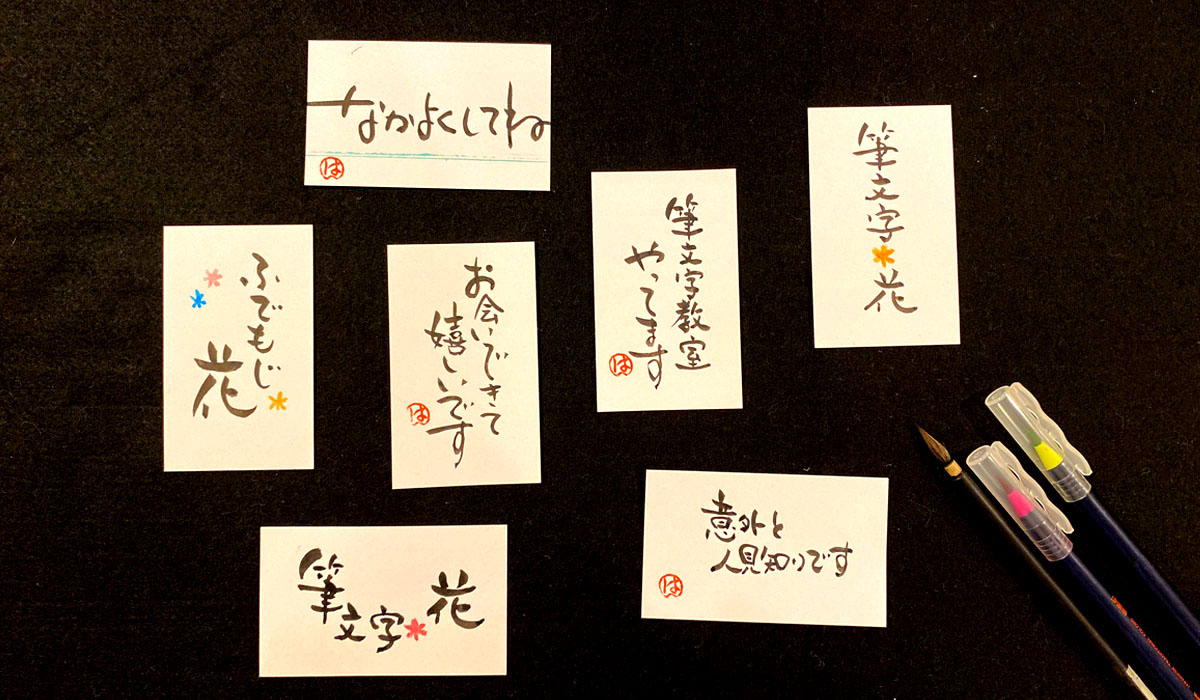 なかよくしてね
は
筆文字*花
筆文字教室
やってます
は
ふでもじ
花
お会いできて
嬉しいです
は
意外と
人見知りです
は
筆文字*花